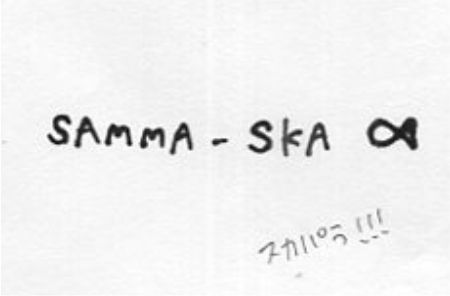 SAMMA - SKA
スカパラ!!!